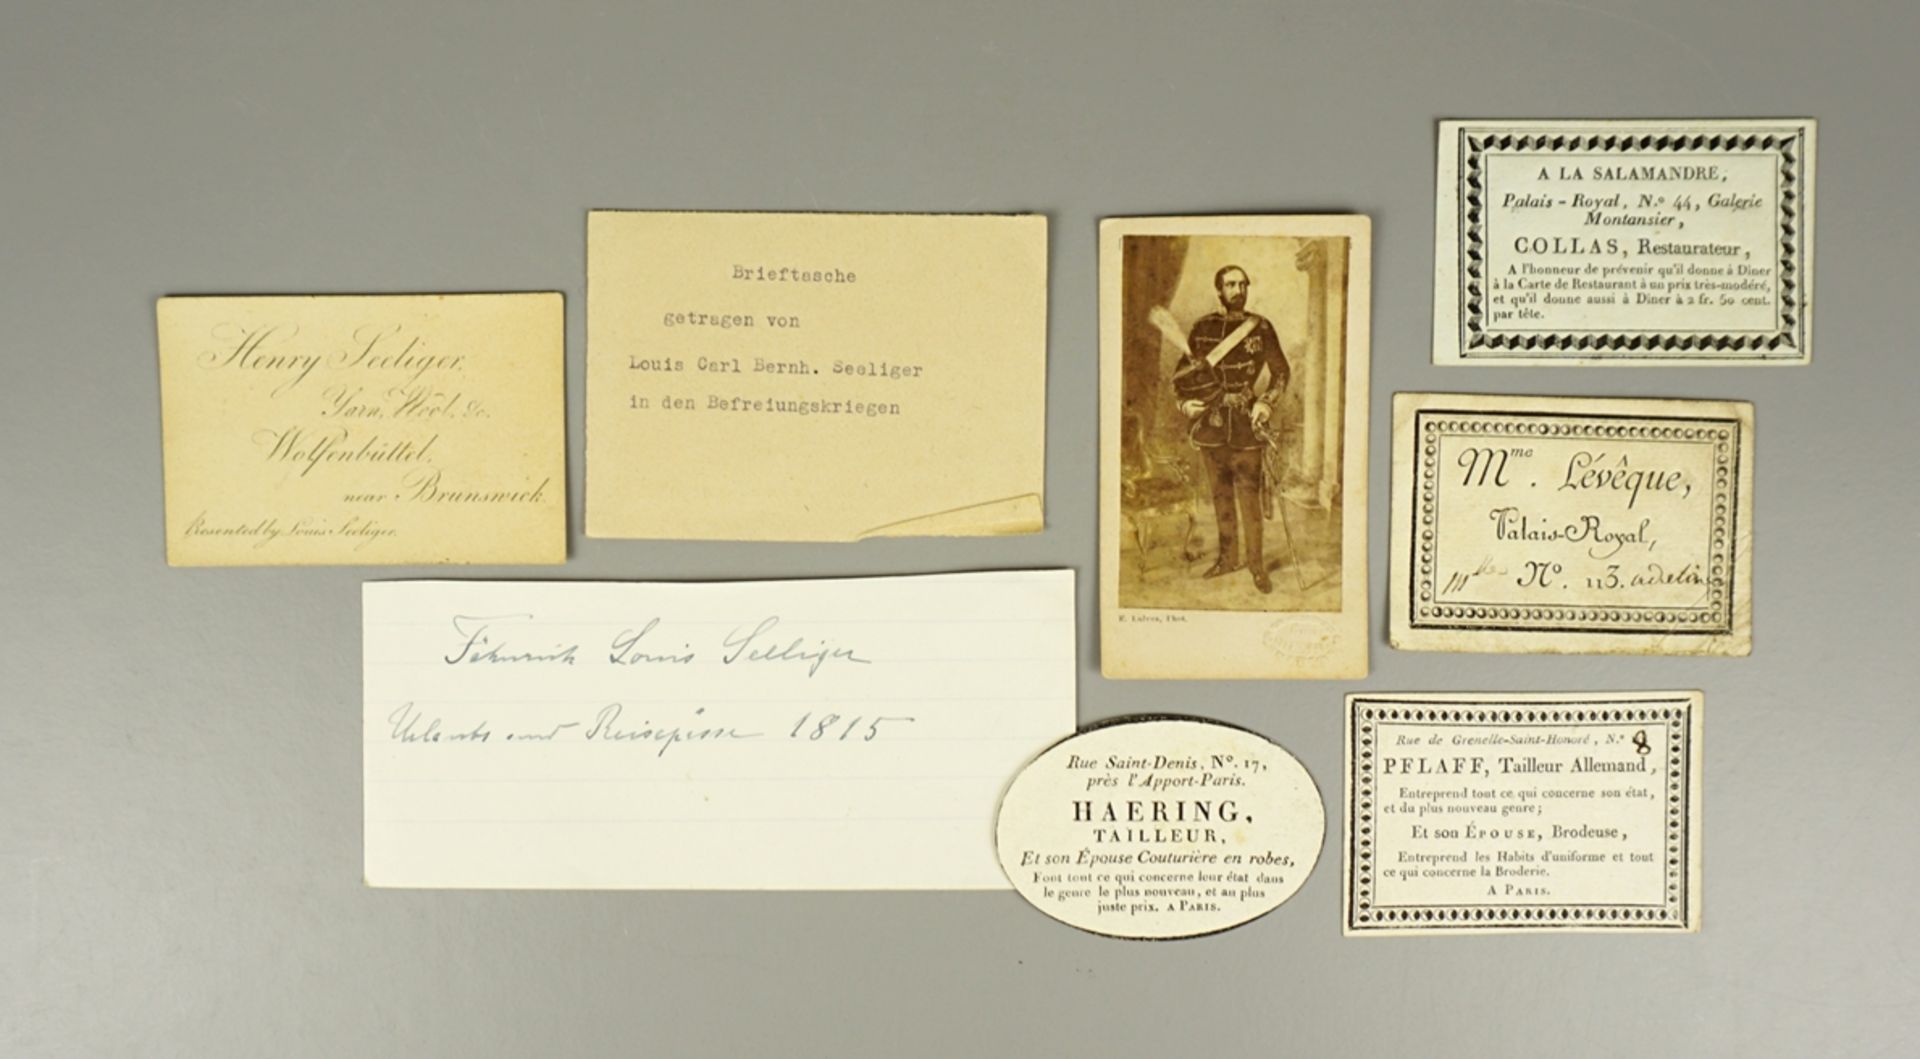 Henry Seeliger.
Yarn, Wool, &c.
Wolfenbüttel,
near Brunswick.
Presented by Louis Seeliger.
Brieftasche
getragen von
Louis Carl Bernh. Seeliger
in den Befreiungskriegen
Fähnrich Louis Seeliger
Urlaubs und Reisepässe 1815
E. Lulves, Phot.
A LA SALAMANDRE,
Palais-Royal, N.º 44, Galerie
Montansier,
COLLAS, Restaurateur,
A l'honneur de prévenir qu'il donne à Diner
à la Carte de Restaurant à un prix très-modéré,
et qu'il donne aussi à Diner à 2 fr. 50 cent.
par tête.
Mme. Lévêque,
Palais-Royal,
Mlle Nº. 113.
Rue Saint-Denis, Nº. 17,
près l'Apport-Paris.
HAERING,
TAILLEUR,
Et son Épouse Couturière en robes,
Font tout ce qui concerne leur état dans
le genre le plus nouveau, et au plus
juste prix. A PARIS.
Rue de Grenelle-Saint-Honoré, N.º 8
PFLAFF, Tailleur Allemand,
Entreprend tout ce qui concerne son état,
et du plus nouveau genre;
Et son ÉPOUSE, Brodeuse,
Entreprend les Habits d'uniforme et tout
ce qui concerne la Broderie.
A PARIS.